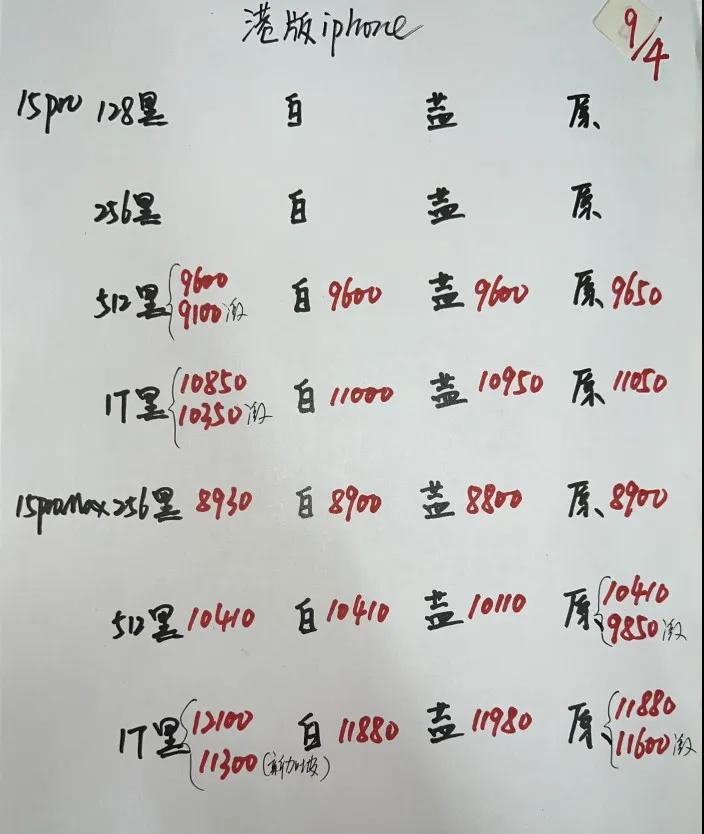 港版iphone 9/4
15pro 128黑 白 蓝 原
256黑 白 蓝 原
512黑 9600 9100激 白 9600 蓝 9600 原 9650
1T黑 10850 10350激 白 11000 蓝 10950 原 11050
15proMax 256黑 8930 白 8900 蓝 8800 原 8900
512黑 10410 白 10410 蓝 10110 原 10410 9850激
1T黑 12100 11300(新加坡) 白 11880 蓝 11980 原 11880 11600激